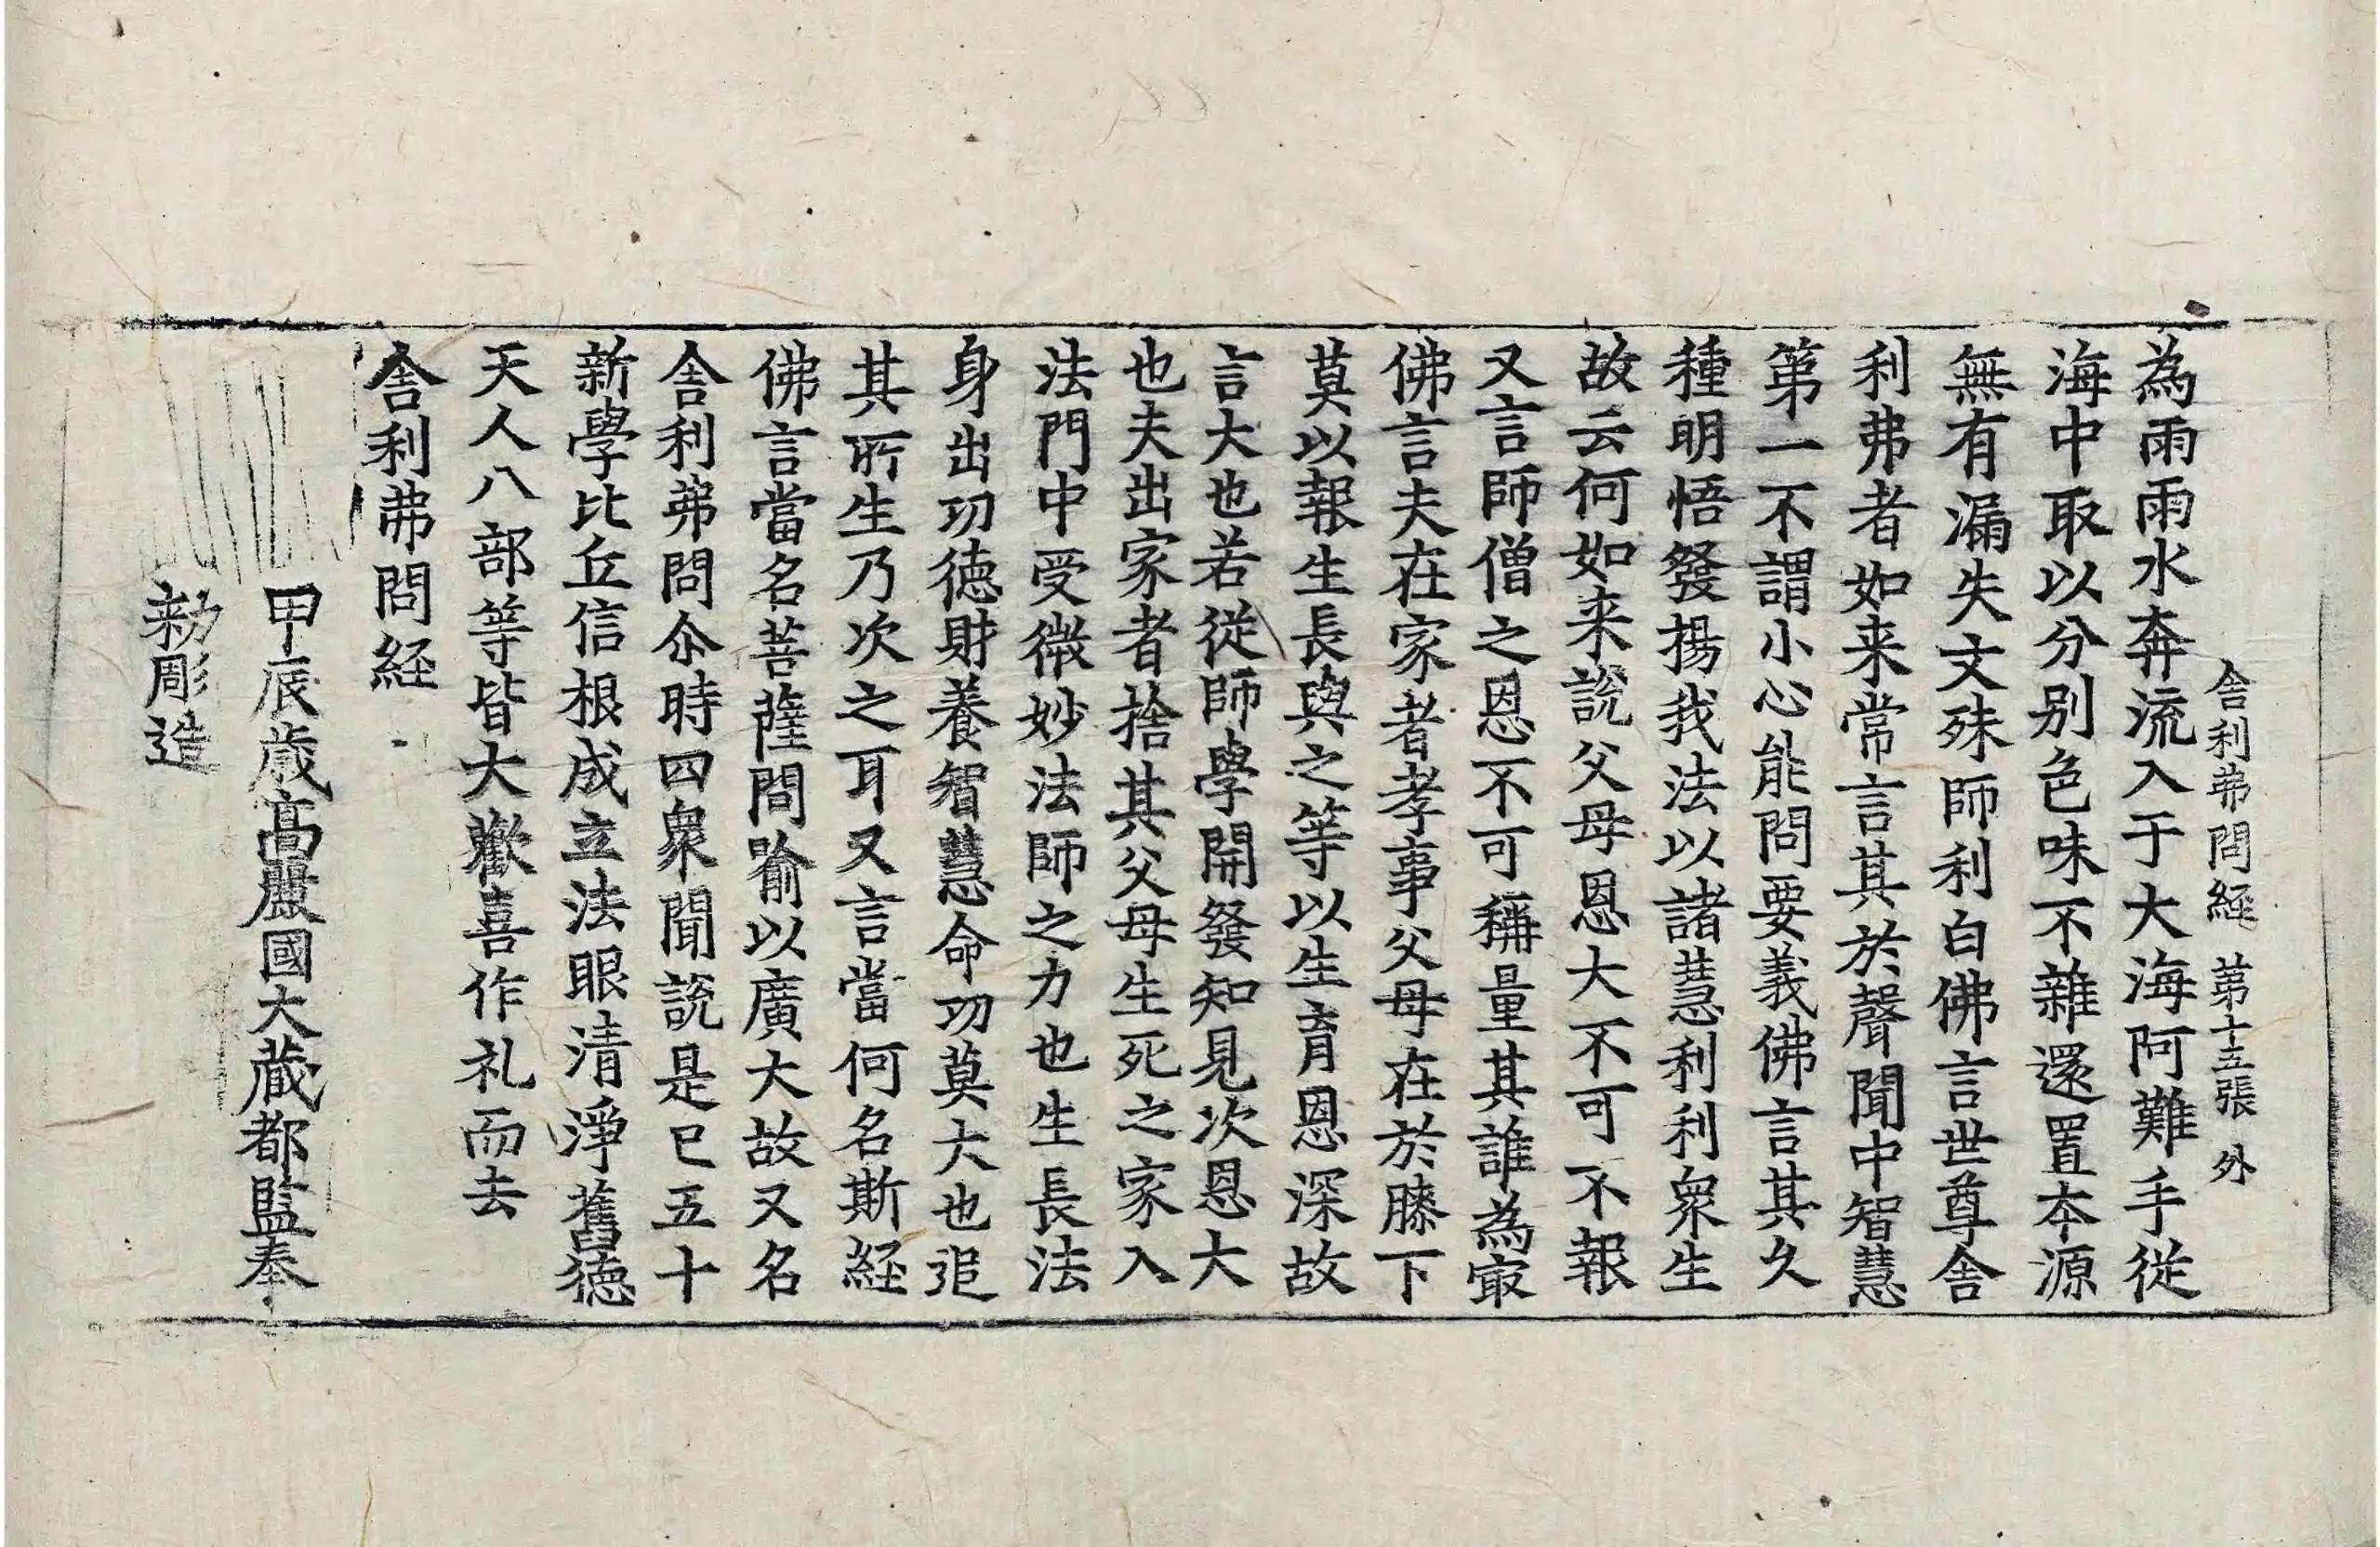 舍利弗問経 第十五張 外
為雨雨水奔流入于大海阿難手従
海中取以分别色味不雜還置夲源
無有漏失文殊師利白佛言世尊舍
利弗者如来常言其於聲聞中智慧
第一不謂小心能問要義佛言其久
種明悟發揚我法以諸慧利利衆生
故云何如来說父母恩大不可不報
又言師僧之恩不可稱量其誰為㝡
佛言夫在家者孝事父母在於膝下
莫以報生長與之等以生育恩深故
言大也若従師學開發知見次恩大
也夫出家者捨其父母生死之家入
法門中受微妙法師之力也生長法
身出功徳財養智慧命功莫大也追
其所生乃次之耳又言當何名斯経
佛言當名菩薩問喻以廣大故又名
舍利弗問尒時四衆聞說是已五十
新學比丘信根成立法眼清淨舊徳
天人八部等皆大歡喜作礼而去
舍利弗問経
甲辰歳髙麗國大藏都監奉
勑彫造